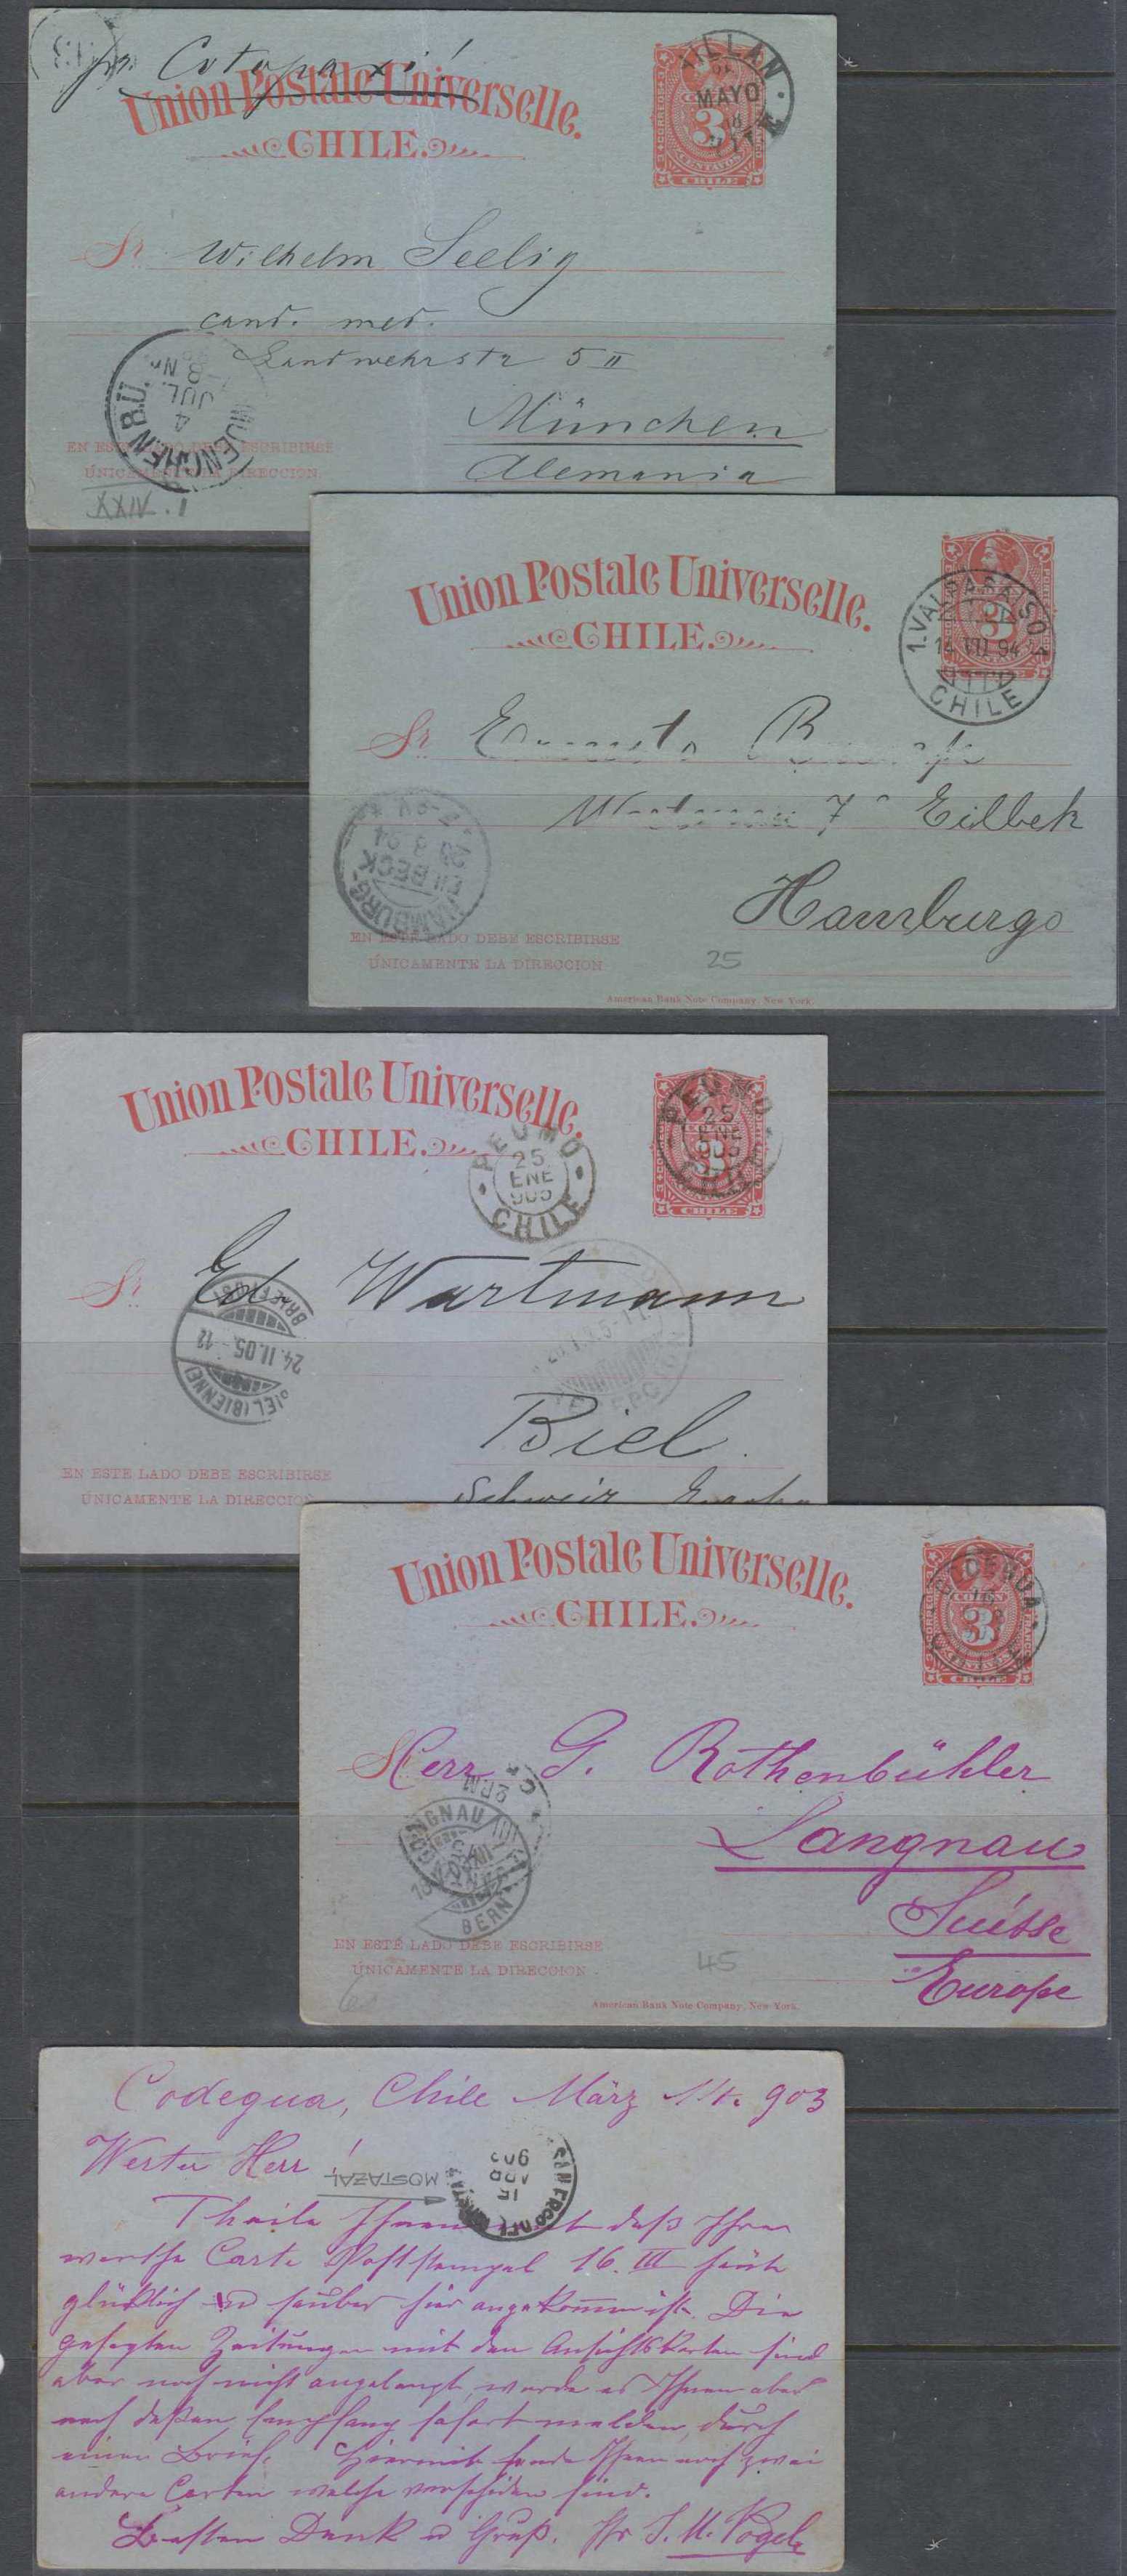 pr. Cotopaxi!
Union Postale Universelle.
CHILE.
CORREOS
3
CENTAVOS
CHILE
MAYO
Sr. Wilhelm Seelig
cand. med.
Landwehrstr 5 II
München
Alemania
MUENCHEN B.U.
4
JUL.
8
EN ESTE LADO DEBE ESCRIBIRSE
ÚNICAMENTE LA DIRECCION.
XXIV. 1
Union Postale Universelle.
CHILE.
1. VALPARAISO
14 VII 94
CHILE
3
Sr. Ernesto
7 Eilbek
Hamburgo
HAMBURG-
EILBECK
EN ESTE LADO DEBE ESCRIBIRSE
ÚNICAMENTE LA DIRECCION.
25
American Bank Note Company, New York.
Union Postale Universelle.
CHILE.
PEUMO
25
ENE
905
CHILE
PEUMO
25
ENE
905
CHILE
Sr. Ed. Wartmann
BIEL (BIENNE)
24.II.05.-12
Biel
Schweiz Europa
EN ESTE LADO DEBE ESCRIBIRSE
ÚNICAMENTE LA DIRECCION
Union Postale Universelle.
CHILE.
CODEGUA
COLON
3
CENTAVOS
CHILE
Herr G. Rothenbühler
Langnau
Suisse
Europe
2 PM
LANGNAU
BERN
EN ESTE LADO DEBE ESCRIBIRSE
ÚNICAMENTE LA DIRECCION.
45
American Bank Note Company, New York.
Codegua, Chile März 14. 903
Werter Herr!
MOSTAZAL
15
ABR
903
Theile Ihnen mit daß Ihre
werthe Carte Poststempel 16. III heute
glücklich u sauber hier angekommen ist. Die
gesagten Zeitungen mit den Ansichtskarten sind
aber noch nicht angelangt, werde es Ihnen aber
nach deßen Empfang sofort melden, durch
einen Brief. Hiermit sende Ihnen noch zwei
andere Carten welche verschieden sind.
Besten Dank u Gruß. Ihr J. U. Vogel